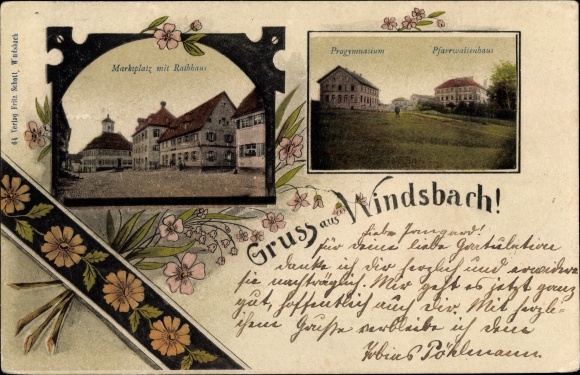 64 Verlag Fritz Schott, Windsbach
Marktplatz mit Rathhaus
Progymnasium Pfarrwaisenhaus
Gruss aus Windsbach!
Liebe Irmgard!
für deine liebe Gratulation
danke ich dir herzlich und erwidere
sie nachträglich. Mir geht es jetzt ganz
gut, hoffentlich auch dir. Mit herzli-
chem Gruße verbleibe ich dein
Tobias Pöhlmann.